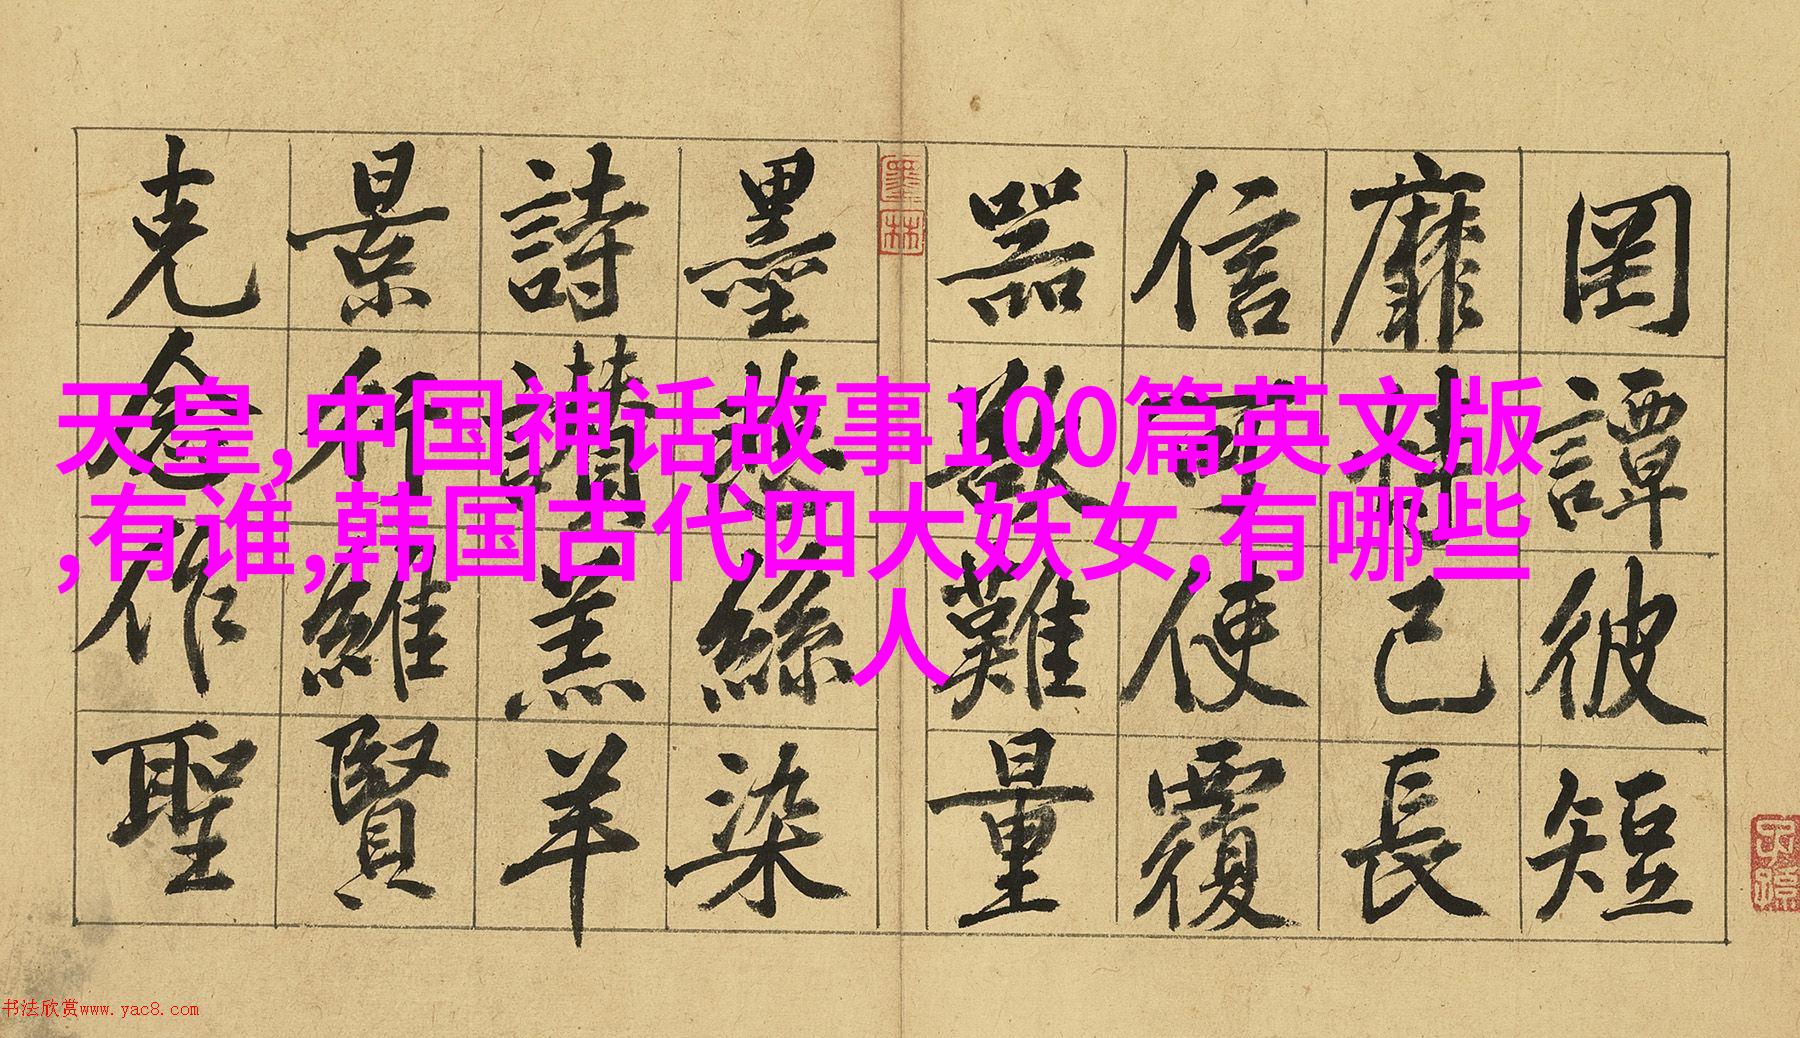 天皇,中国神话故事100篇英文版
,有谁,韩国古代四大妖女,有哪些
人
罔譚彼短
靡恃己長
信可使覆
器欲難量
墨悲絲染
詩讚羔羊
景行維賢
克念作聖
墨林
书法欣赏www.yac8.com